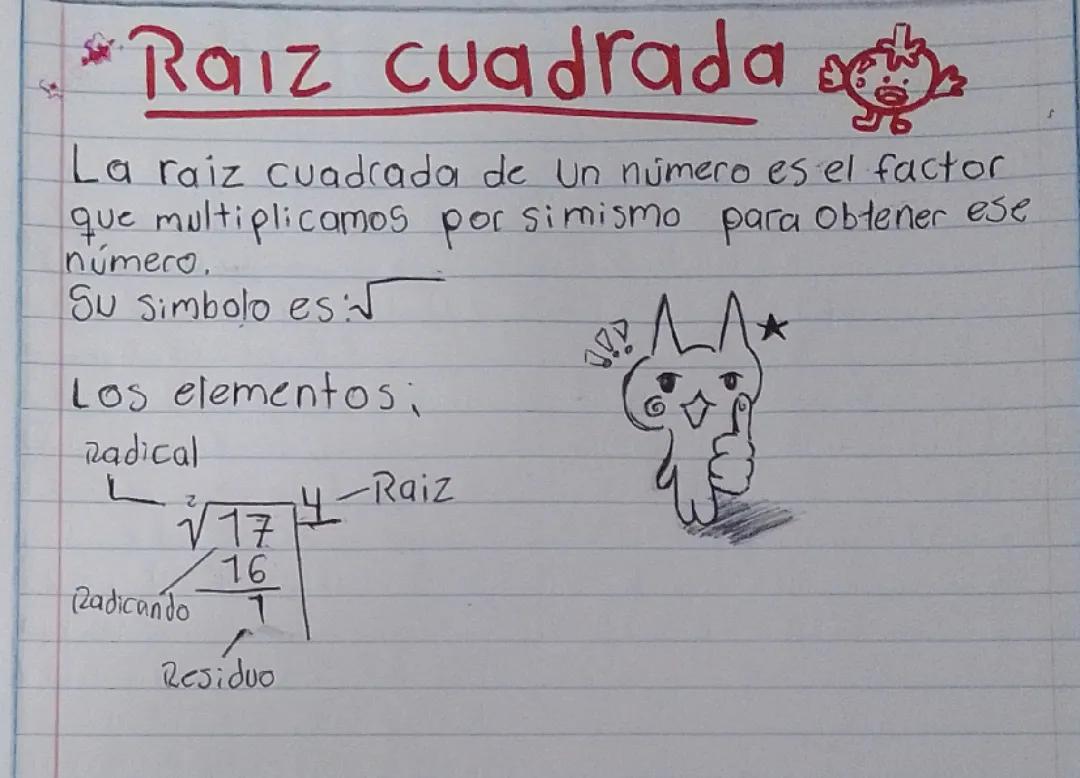 Raiz cuadrada
La raiz cuadrada de un número es el factor
que multiplicamos por simismo para obtener ese
número.
Su simbolo es:√
Los elementos;
Radical
2
√17 4 — Raiz
16
Radicando 1
Residuo